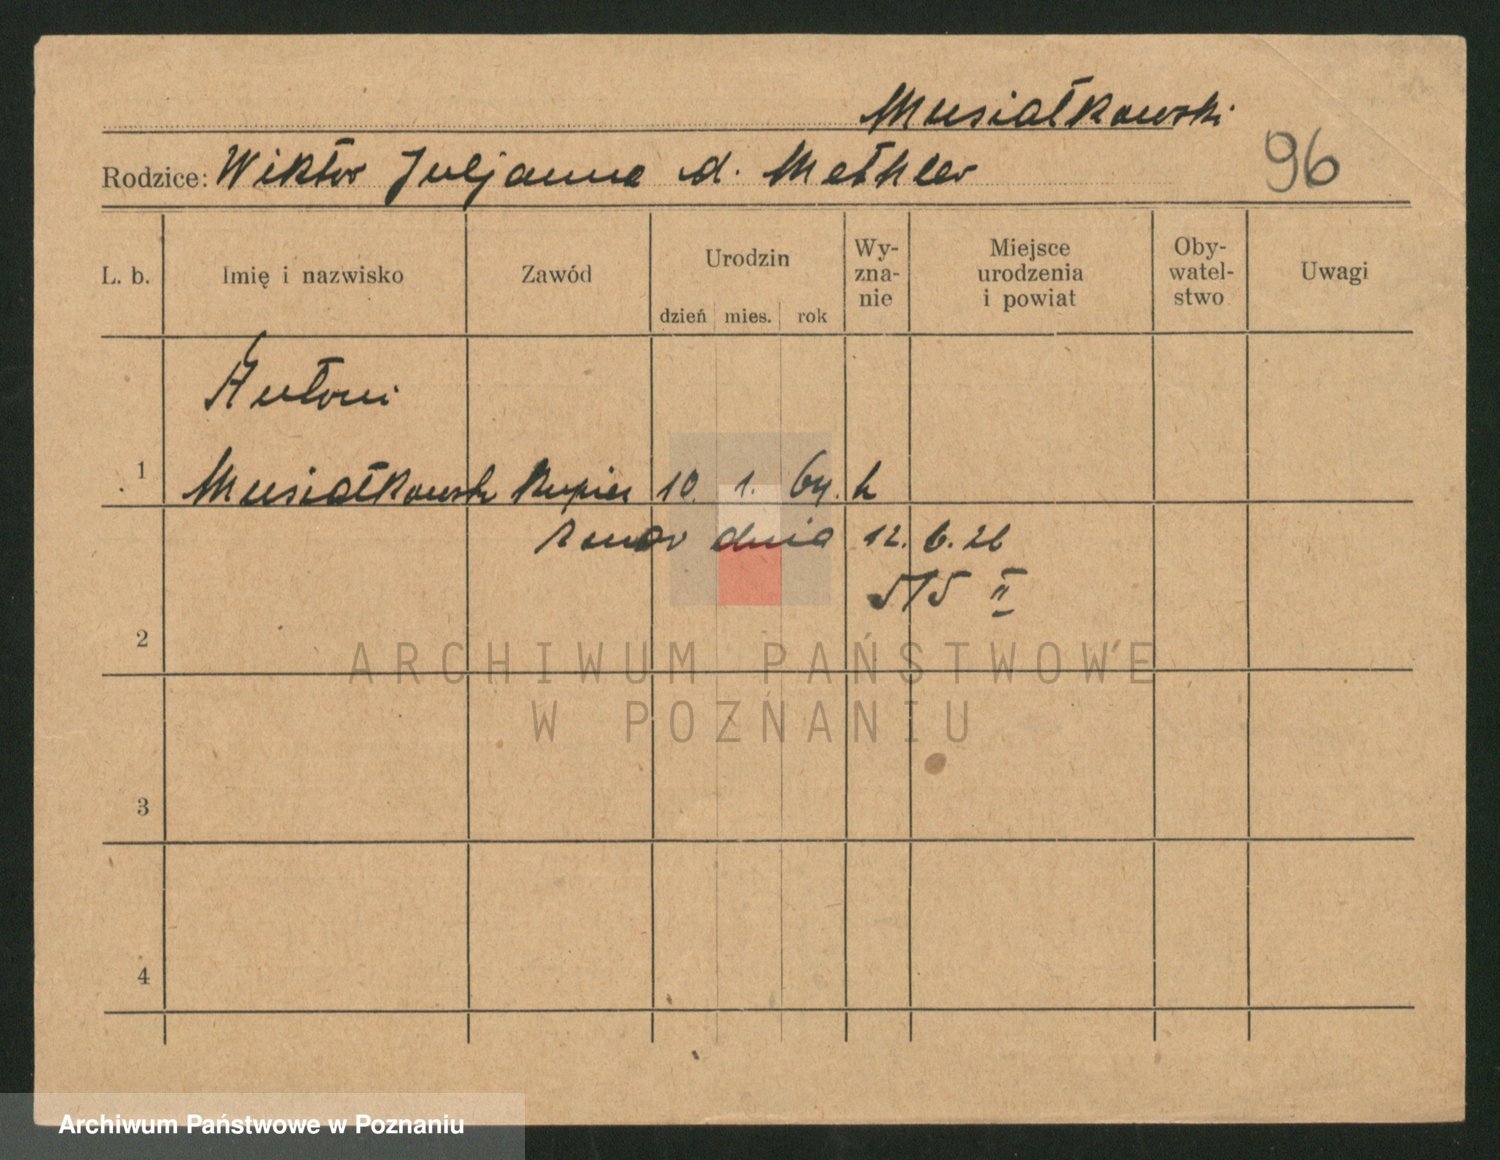 Musiałkowski
Rodzice: Wiktor Juljanna d. Methler
96
L. b. Imię i nazwisko Zawód Urodzin dzień mies. rok Wy-zna-nie Miejsce urodzenia i powiat Oby-watel-stwo Uwagi
Antoni
1 Musiałkowski Kupiec 10. 1. 64. k
zmar dnia 12. 6. 26
575 II
2
ARCHIWUM PAŃSTWOWE
W POZNANIU
3
4
Archiwum Państwowe w Poznaniu